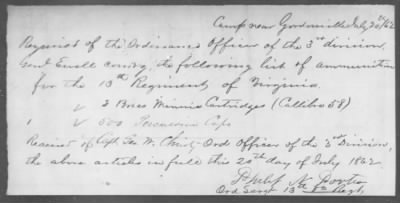 Camp near Gordonsville July 20th/62
Required of the Ordinance Officer of the 3rd division,
Genl Ewell comdg, the following list of ammunition
for the 13th Regiment of Virginia.
2 Boxes Minnie Cartridges (Callibre 58)
500 Percussion Caps
Received of Capt. Geo W. Christy Ord Officer of the 3rd Division,
the above articles in full this 20th day of July 1862
Philip N. Porter
Ord Sergt 13th Va Regt.